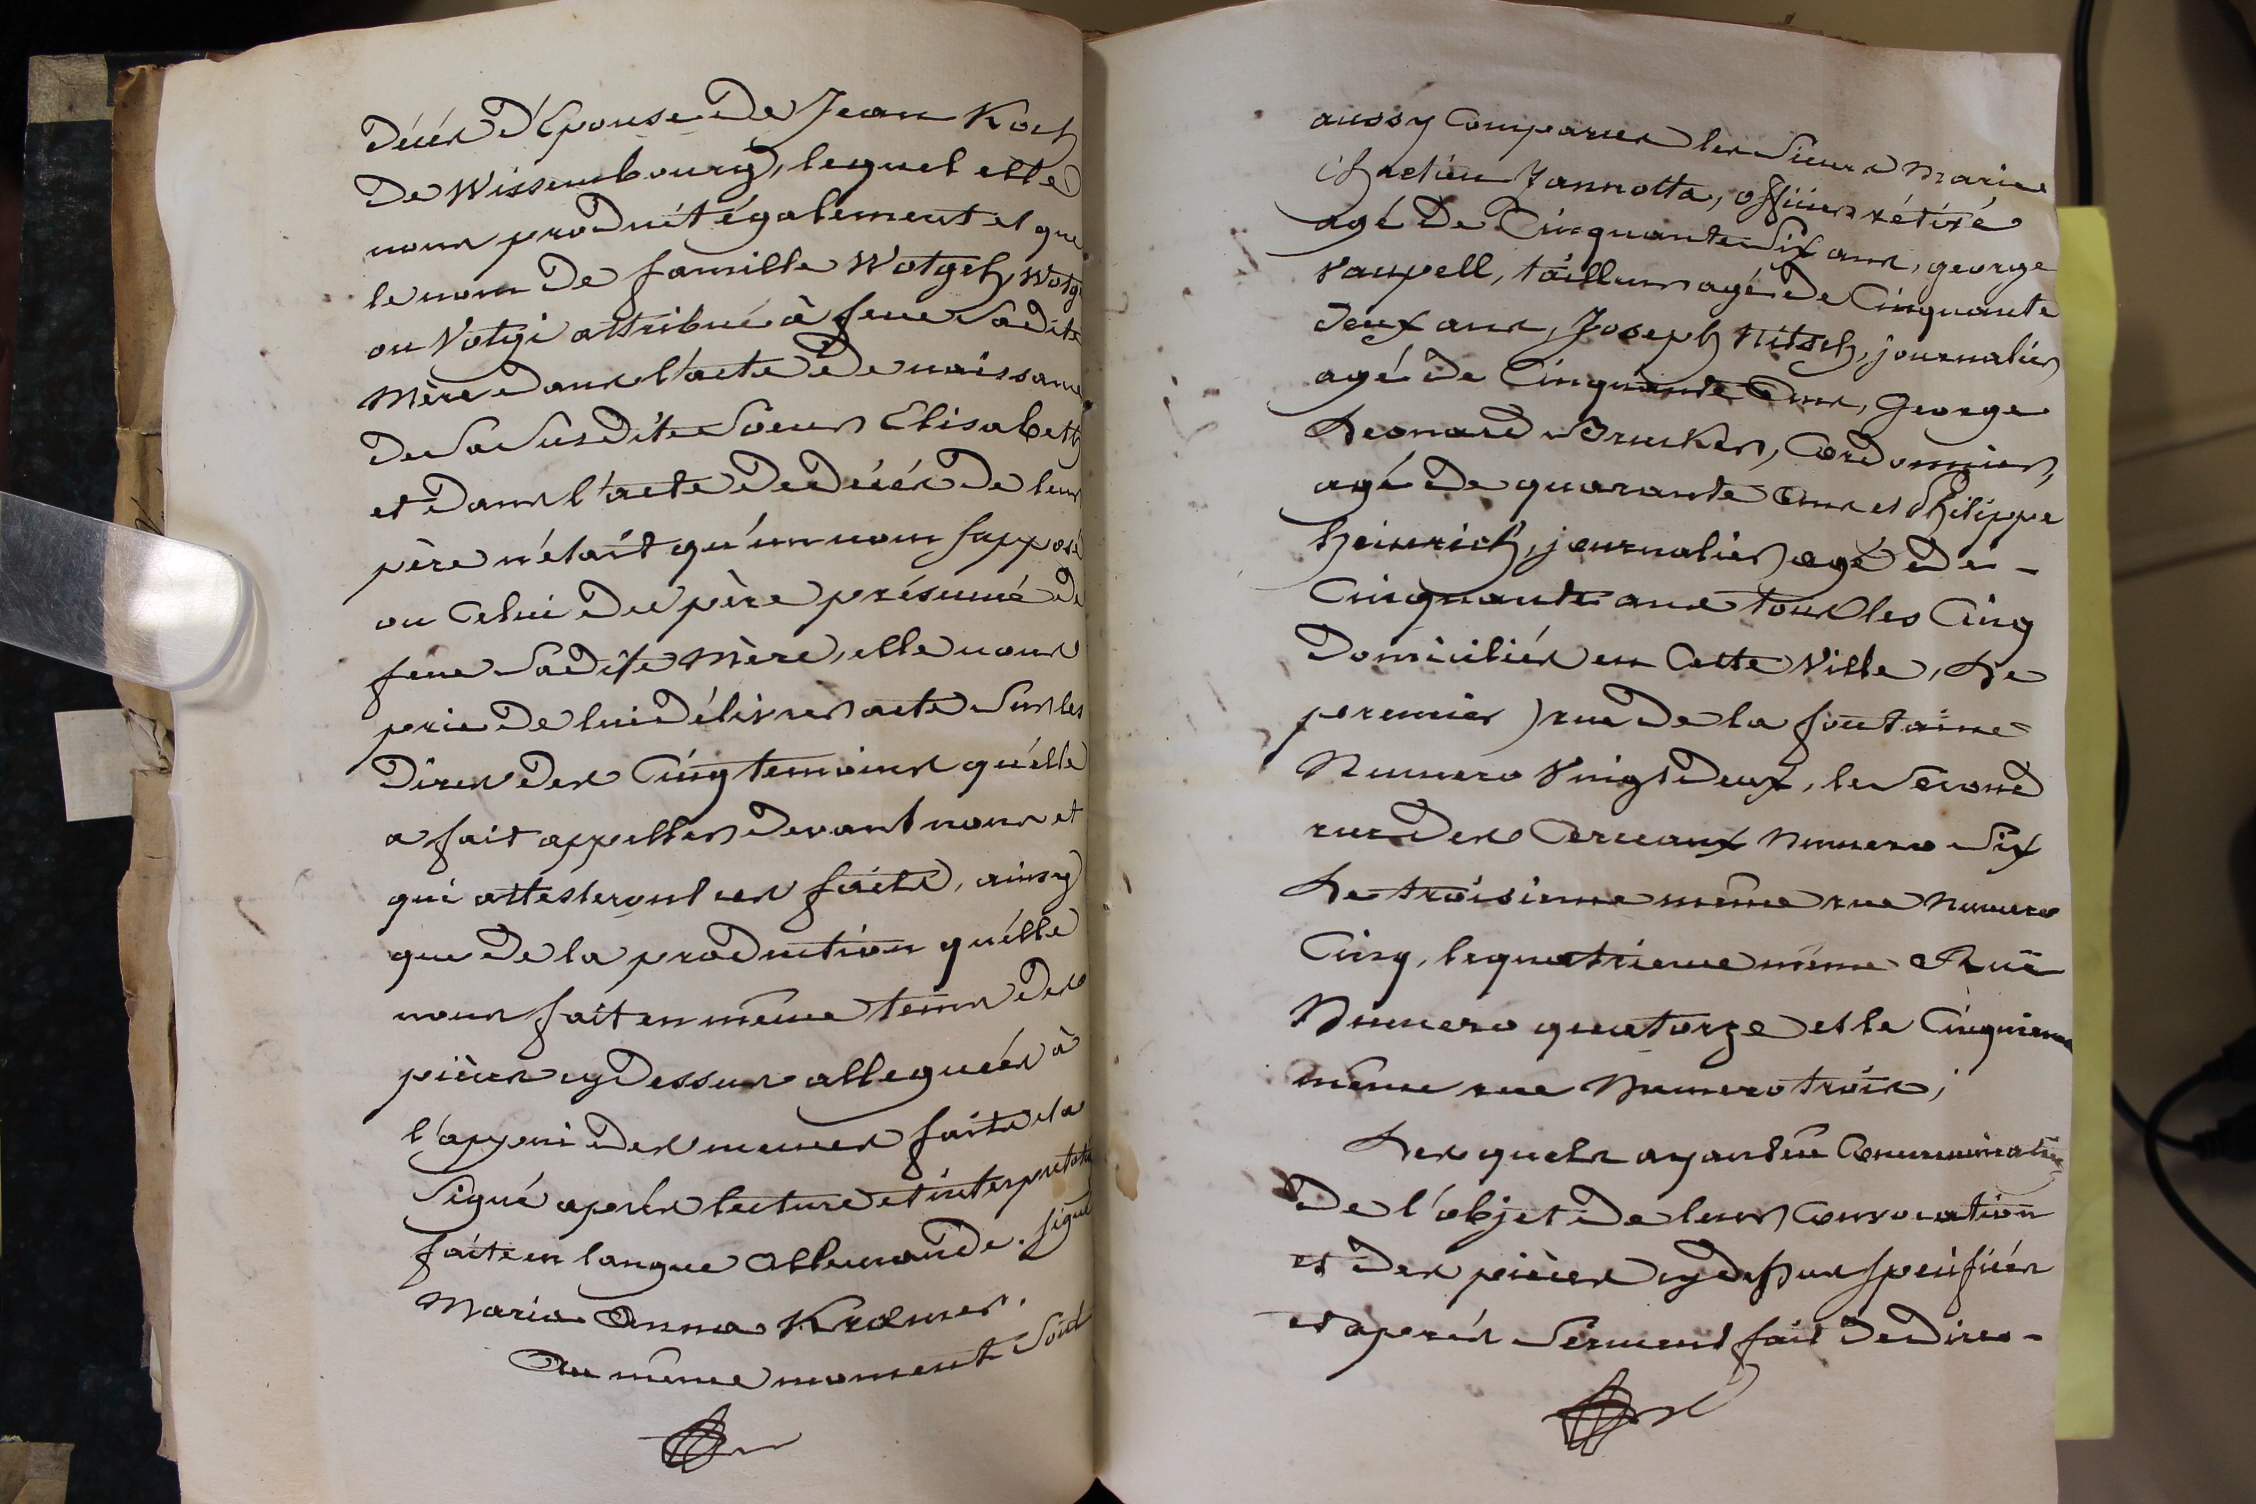 décés d'Epouse de Jean Koch
de Wissembourg, lequel elle
nous produit également et que
le nom de famille Wotgeh, Wotgi
ou Votgi attribué à feue Sadite
Mère dans l'acte de naissance
de Sa Susdite Soeur Elisabeth
et dans l'acte de décés de leur
père n'étaît qu'un nom supposé
ou Celui du père présumé de
feue Sadite Mère, elle nous
prie de lui délivrer acte Sur les
dires des Cinq temoins qu'elle
a fait appeller devant nous et
qui attesteront ces faits, ainsy
que de la production qu'elle
nous fait en même tems des
pièces cydessus alleguées à
l'appui des mêmes faits et a
Signé après lecture et interpretation
faite en langue allemande. signé
Maria Anna Kræmer.
Au même moment Sont
aussy Comparus les Sieurs Marie
Jannotta, officier rétiré
agé de Cinquante Six ans, george
Vaupell, tailleur agé de Cinquante
deux ans, Joseph Nitsch, journalier
agé de Cinquante ans, George
Leonard Brucker, Cordonnier,
agé de quarante ans et Philippe
heinrich, journalier agé de -
Cinquante ans tous les Cinq
domiciliés en Cette Ville, Le
premier) rue de la fontaine
Numero Vingt deux, le Second
rue des Cerceaux Numero Six
Le troisieme même rue Numero
Cinq, le quatrieme même Rue
Numero quatorze et le Cinquieme
même rue Numero trois;
Les quels ayant eu Communication
de l'objet de leur Convocation
et des pièces cydessus specifiées
et après Serment fait de dire -